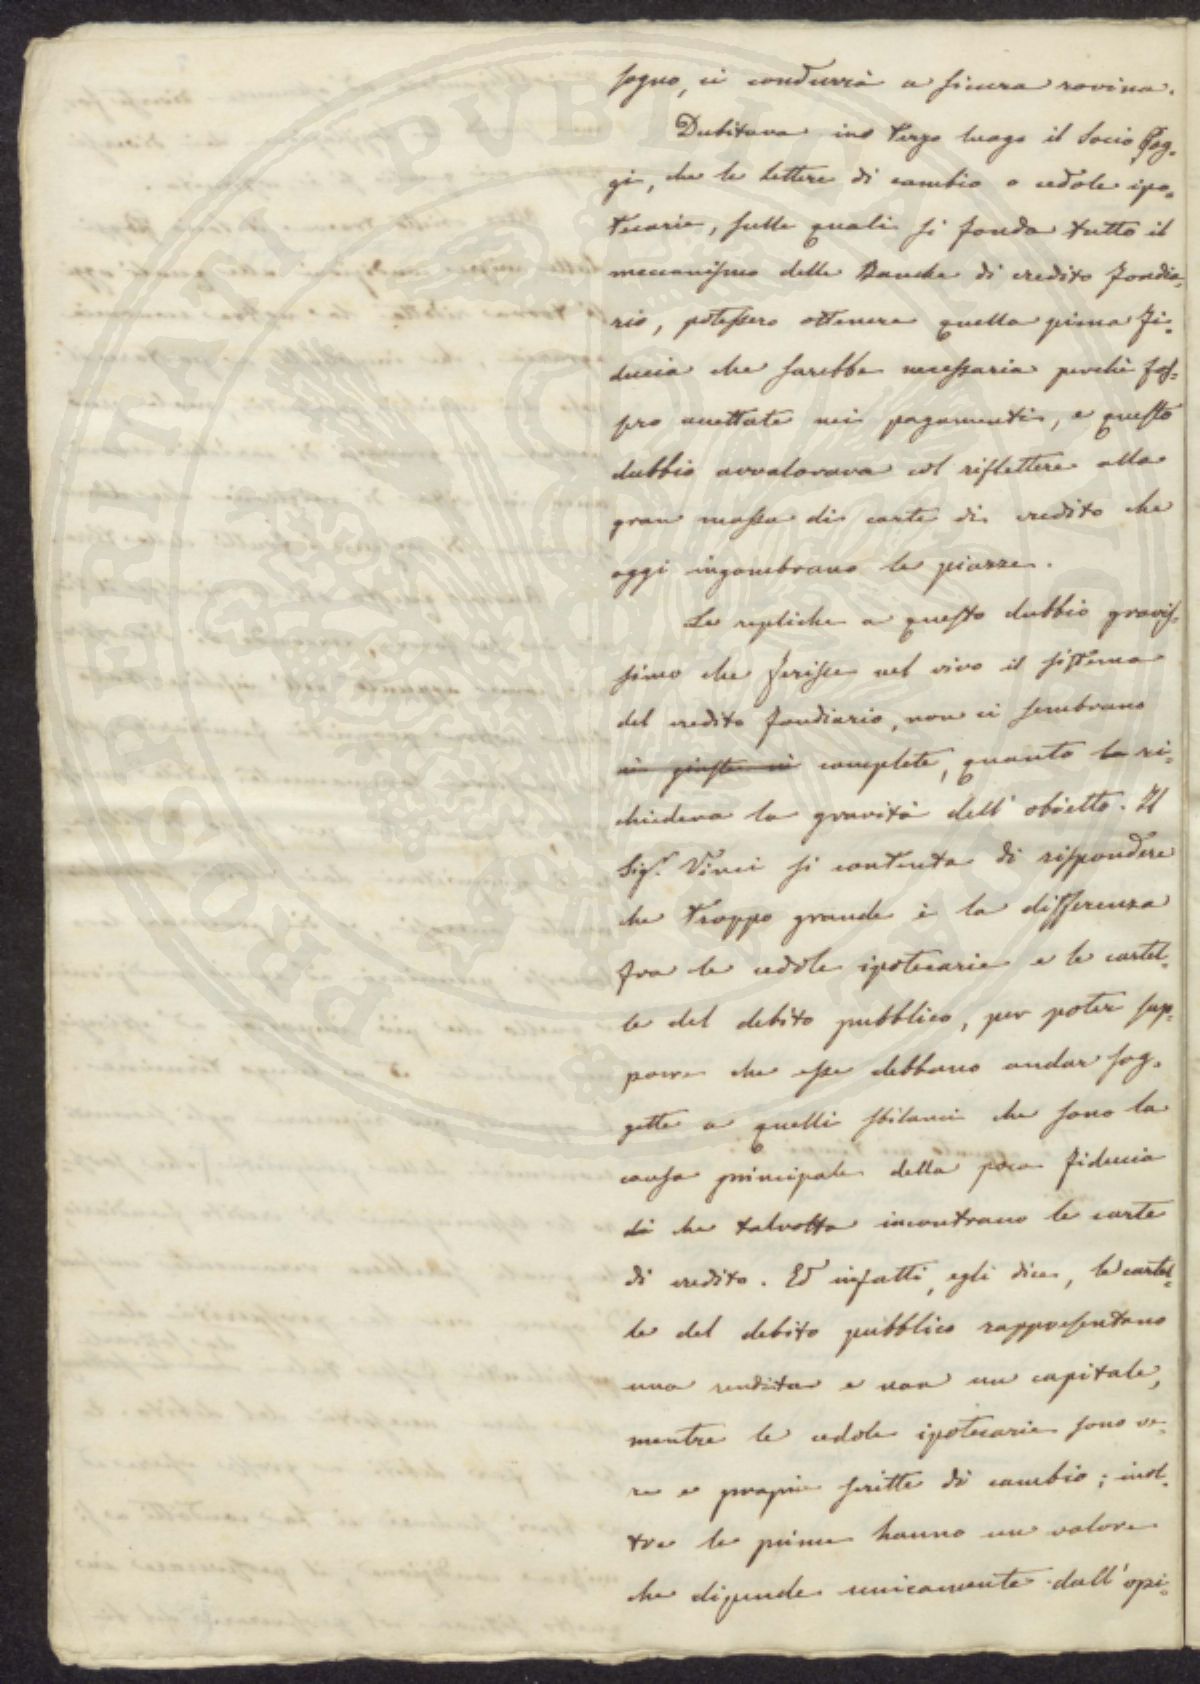 sogno, ci condurrà a sicura rovina.
Dubitava in terzo luogo il Socio Pog-
gi, che le lettere di cambio o cedole ipo-
tecarie, sulle quali si fonda tutto il
meccanismo delle Banche di credito fondia-
rio, potessero ottenere quella prima fi-
ducia che sarebbe necessaria perchè fos-
sero accettate nei pagamenti, e questo
dubbio avvalorava col riflettere alla
gran massa di carte di credito che
oggi ingombrano le piazze.
Le repliche a questo dubbio gravis-
simo che ferisce nel vivo il sistema
del credito fondiario, non ci sembrano
nè giuste nè complete, quanto lo ri-
chiedeva la gravità dell'obietto. Il
Sig. Vinci si contenta di rispondere
che troppo grande è la differenza
fra le cedole ipotecarie e le cartel-
le del debito pubblico, per poter sup-
porre che esse debbano andar sog-
gette a quelli sbilanci che sono la
causa principale della poca fiducia
di che talvolta incontrano le carte
di credito. Ed infatti, egli dice, le cartel-
le del debito pubblico rappresentano
una rendita e non un capitale,
mentre le cedole ipotecarie sono ve-
re e proprie scritte di cambio; inol-
tre le prime hanno un valore
che dipende unicamente dall'opi-
PROSPERITATI PUBLICAE AUGENDAE